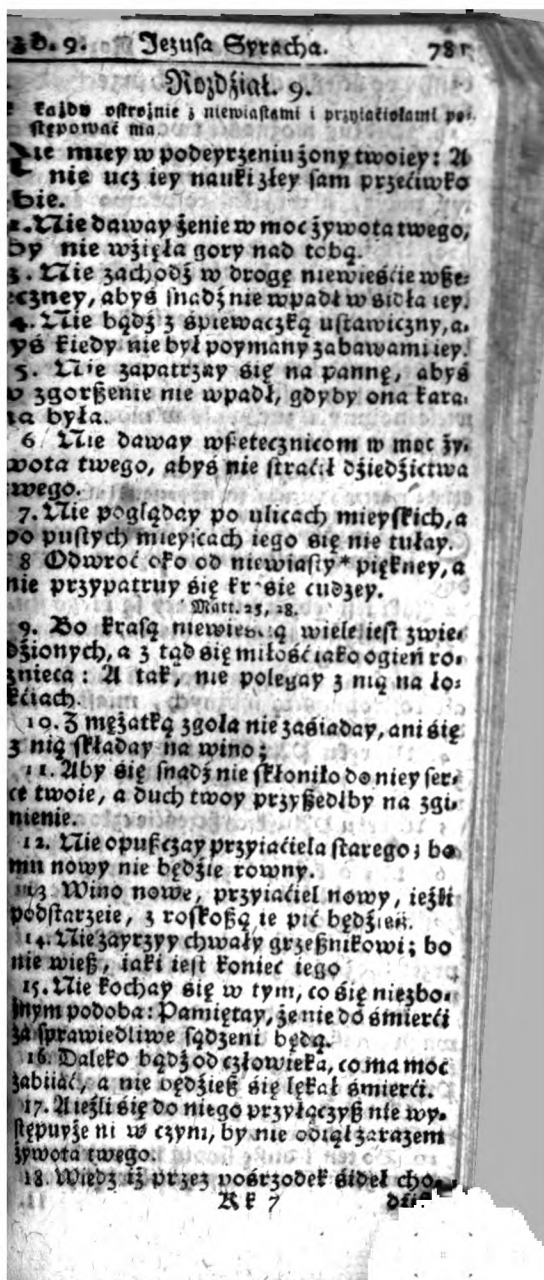 d. 9. Jezusa Syracha. 781
Rozdźiał. 9.
każdy ostrożnie z niewiastami i przyiaćiołami po-
stępować ma.
Nie miey w podeyrzeniu żony twoiey: A
nie ucz iey nauki złey sam przećiwko
sobie.
2. Nie daway żenie w moc żywota twego,
by nie wźięła gory nad tobą.
3. Nie zachodź w drogę niewieście wsze-
teczney, abyś snadź nie wpadł w sidła iey.
4. Nie bądź z śpiewaczką ustawiczny, a-
byś kiedy nie był poymany zabawami iey.
5. Nie zapatrzay się na pannę, abyś
w zgorszenie nie wpadł, gdyby ona kara-
na była.
6. Nie daway wszetecznicom w moc ży-
wota twego, abyś nie straćił dźiedźictwa
twego.
7. Nie pogląday po ulicach mieyskich, a
po pustych mieyscach iego się nie tułay.
8 Odwroć oko od niewiasty * piękney, a
nie przypatruy się krasie cudzey.
* Matt. 25, 28.
9. Bo krasą niewieścią wiele iest zwie-
dźionych, a z tąd się miłość iako ogień ro-
znieca: A tak, nie polegay z nią na ło-
kćiach.
10. Z mężatką zgoła nie zasiaday, ani się
z nią składay na wino;
11. Aby się snadź nie skłoniło do niey ser-
ce twoie, a duch twoy przyszedłby na zgi-
nienie.
12. Nie opuszczay przyiaćiela starego; bo
mu nowy nie będźie rowny.
13 Wino nowe, przyiaćiel nowy, ieźli
podstarzeie, z roskoszą ie pić będźiesz.
14. Nie zayrzyy chwały grzesznikowi; bo
nie wiesz, iaki iest koniec iego
15. Nie kochay się w tym, co się niezbo-
żnym podoba: Pamiętay, że nie do śmierći
za sprawiedliwe sądzeni będą.
16. Daleko bądź od człowieka, co ma moc
zabiiać, a nie będźiesz się lękał śmierći.
17. A ieźli się do niego przyłączysz nie wy-
stępuyże ni w czym, by nie odiął zarazem
żywota twego.
18. Wiedz iż przez pośrzodek śideł cho-
K k 7